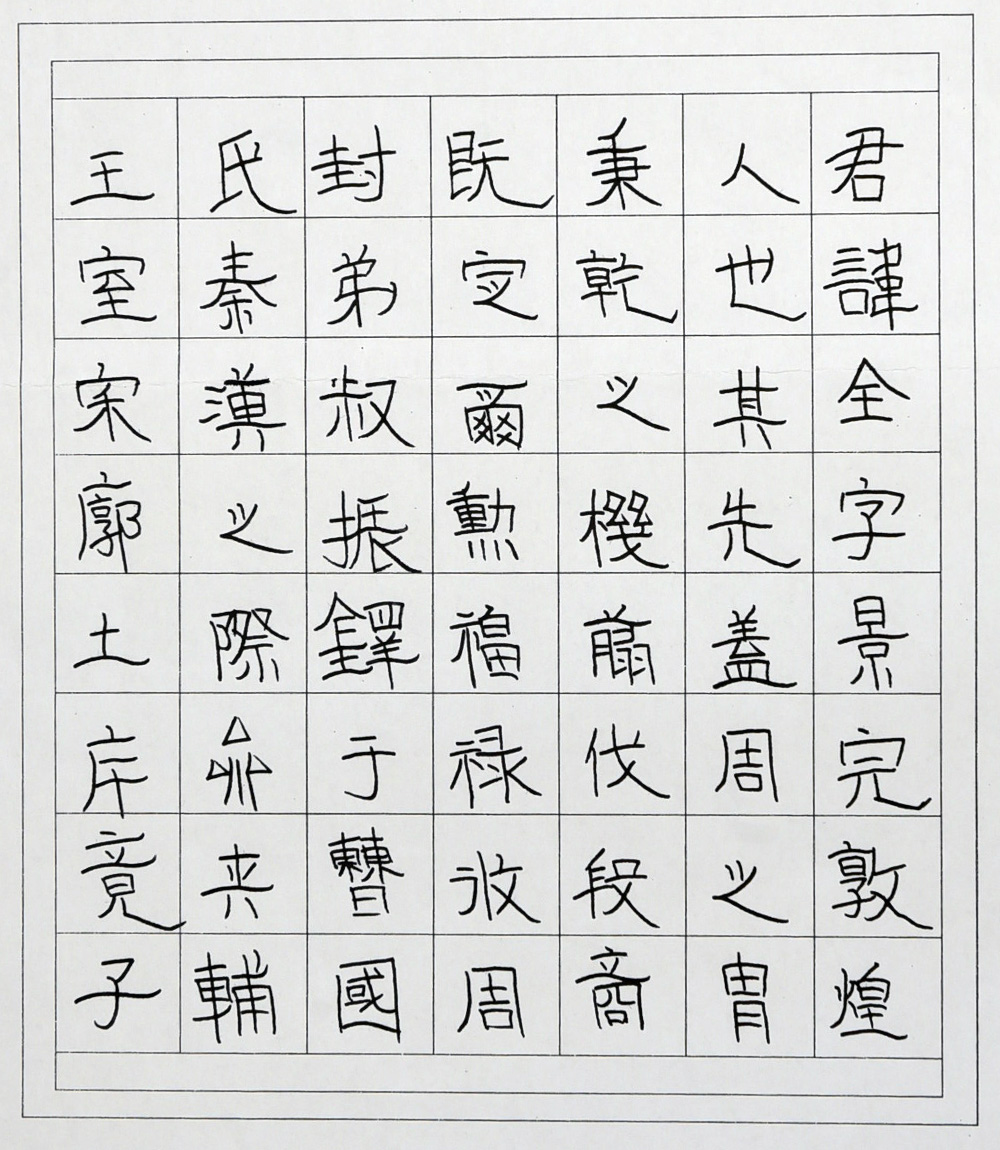 君諱全字景完敦煌
人也其先蓋周之胄
秉乾之機翦伐殷商
既定爾勳福禄攸周
封弟叔振鐸于曹國
氏秦漢之際參夾輔
王室宗廓土斥竟子